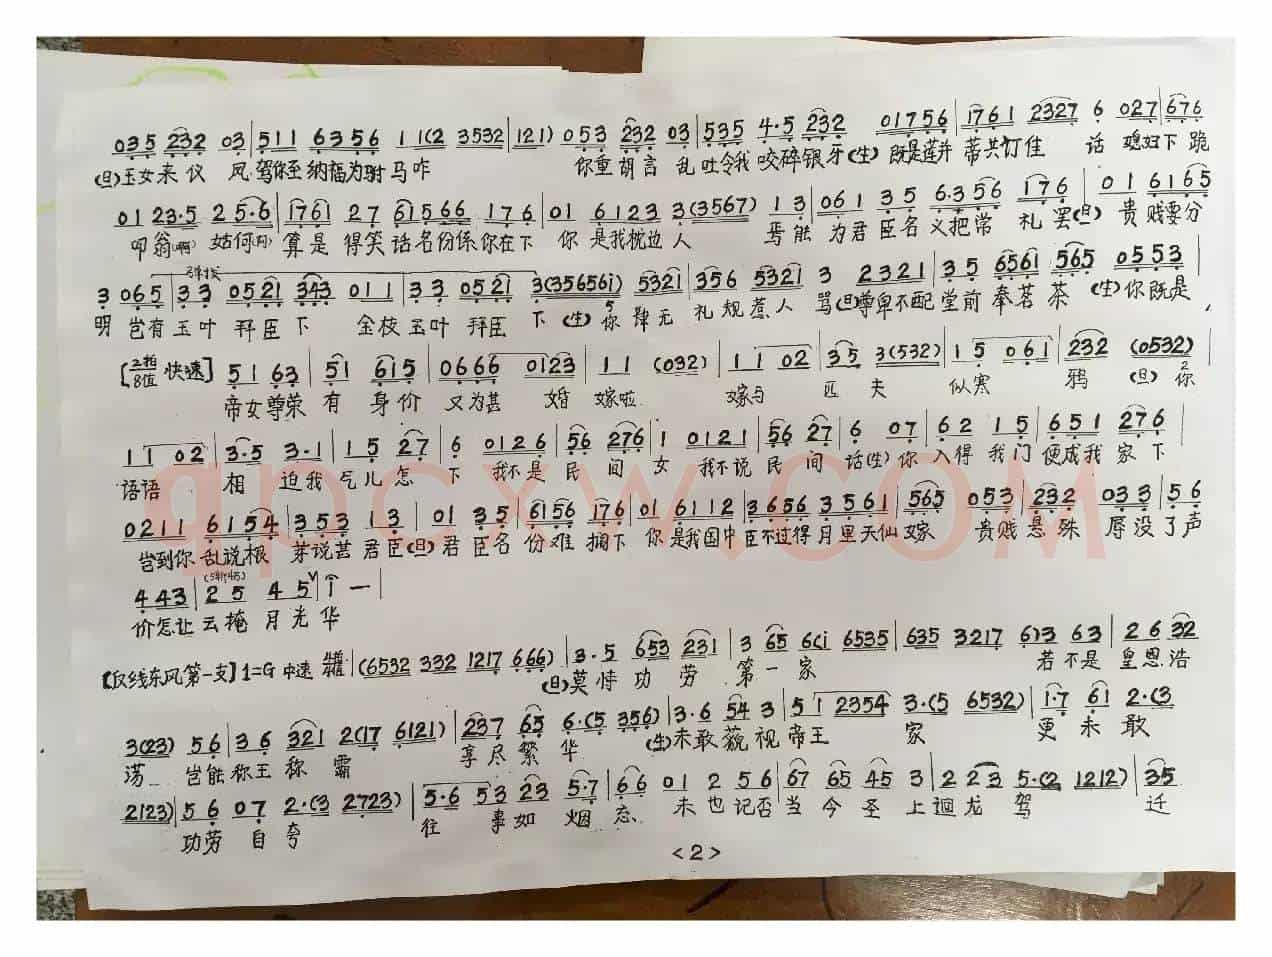 0 3 5 2 3 2 0 3 | 5 1 1 6 3 5 6 1 1 (2 3 5 3 2 | 1 2 1) 0 5 3 2 3 2 0 3 | 5 3 5 4·5 2 3 2 0 1 7 5 6 | 1 7 6 1 2 3 2 7 6 0 2 7 | 6 7 6
(旦)玉女来仪 风驾你至纳福为驸马咋 你重胡言 乱吐令我咬碎银牙(生) 既是莲并蒂共订佳 话 媳妇下跪
0 1 2 3·5 2 5·6 | 1 7 6 1 2 7 6 1 5 6 6 1 7 6 | 0 1 6 1 2 3 3 (3 5 6 7) 1 3 | 0 6 1 3 5 6·3 5 6 1 7 6 | 0 1 6 1 6 5
叩翁(啊) 姑何(冈) 算是 得笑话名份係你在下 你 是我枕边人 焉能 为君臣名义把常 礼 罢(旦) 贵 贱要分
3 0 6 5 | 3 3 0 5 2 1 3 4 3 0 1 1 | 3 3 0 5 2 1 3 (3 5 6 5 6 i) 5 3 2 1 | 3 5 6 5 3 2 1 3 2 3 2 1 | 3 5 6 5 6 i 5 6 5 0 5 5 3 |
明 岂有玉叶拜臣下 金枝玉叶拜臣 下 (生) 你肆无 礼规惹人 骂(旦)尊卑不配堂前奉茗茶 (生)你既是
[2拍 8值 快速] 5 1 6 3 | 5 1 6 1 5 | 0 6 6 6 0 1 2 3 | 1 1 (0 3 2) | 1 1 0 2 | 3 5 3 (5 3 2) | 1 5 0 6 1 | 2 3 2 (0 5 3 2) |
帝女尊荣 有 身价 又为甚 婚 嫁啦 嫁与 匹 夫 似寒 鸦 (旦) 你
1 1 0 2 | 3·5 3·1 | 1 5 2 7 | 6 0 1 2 6 | 5 6 2 7 6 | 1 0 1 2 1 | 5 6 2 7 | 6 0 7 | 6 2 1 5 | 6 5 1 2 7 6 |
语语 相 迫我 气儿怎 下 我不是 民 间 女 我不说 民 间 话(生) 你 入得 我门 便成我 家下
0 2 1 1 6 1 5 4 | 3 5 3 1 3 | 0 1 3 5 | 6 1 5 6 1 7 6 | 0 1 6 1 1 2 | 3 6 5 6 3 5 6 1 | 5 6 5 0 5 3 | 2 3 2 0 3 3 | 5 6
岂到你 乱说根 芽说甚 君臣(旦) 君 臣名 份难 搁下 你 是我国中 臣不过得月里天仙嫁 贵贱 悬 殊 辱没了声
4 4 3 | 2 5 4 5 ∨ | 1 — |
价怎让 云掩 月光华
[反线东风第一支] 1=G 中速 (6 5 3 2 3 3 2 1 2 1 7 6 6 6) | 3·5 6 5 3 2 3 1 | 3 6 5 6 (i 6 5 3 5 | 6 3 5 3 2 1 7 6) 3 6 3 | 2 6 3 2
(旦)莫恃 功 劳 第一家 若不是 皇恩浩
3 (2 3) 5 6 | 3 6 3 2 1 2 (1 7 6 1 2 1) | 2 3 7 6 5 6·(5 3 5 6) | 3·6 5 4 3 | 5 1 2 3 5 4 3·(5 6 5 3 2) | 1·7 6 1 2·(3
荡 岂能称王 称 霸 享尽繁 华 (生)未敢藐视帝王 家 更 未 敢
2 1 2 3) | 5 6 0 7 2·(3 2 7 2 3) | 5·6 5 3 2 3 5·7 | 6 6 0 1 2 5 6 | 6 7 6 5 4 5 3 | 2 2 3 5·(2 1 2 1 2) | 3 5
功劳 自 夸 往 事如 烟 忘 未 也记否 当 今 圣 上迴 龙 驾 迁
<2>
qpcxw.COM